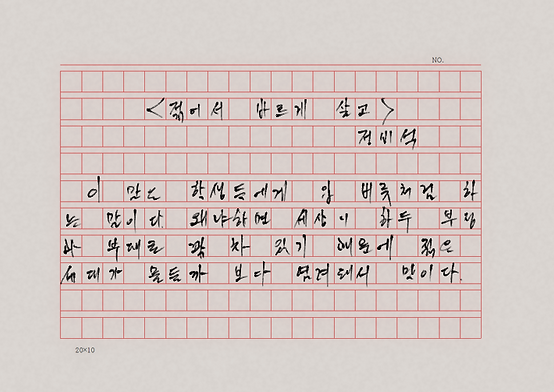 NO.
<젊어서 바르게 살고>
정비석
이 말은 학생들에게 입 버릇처럼 하
는 말이다. 왜냐하면 세상이 하두 부정
과 부패로 꽉 차 있기 때문에 젊은
세대가 물들까 보다 염려돼서 말이다.
20×10